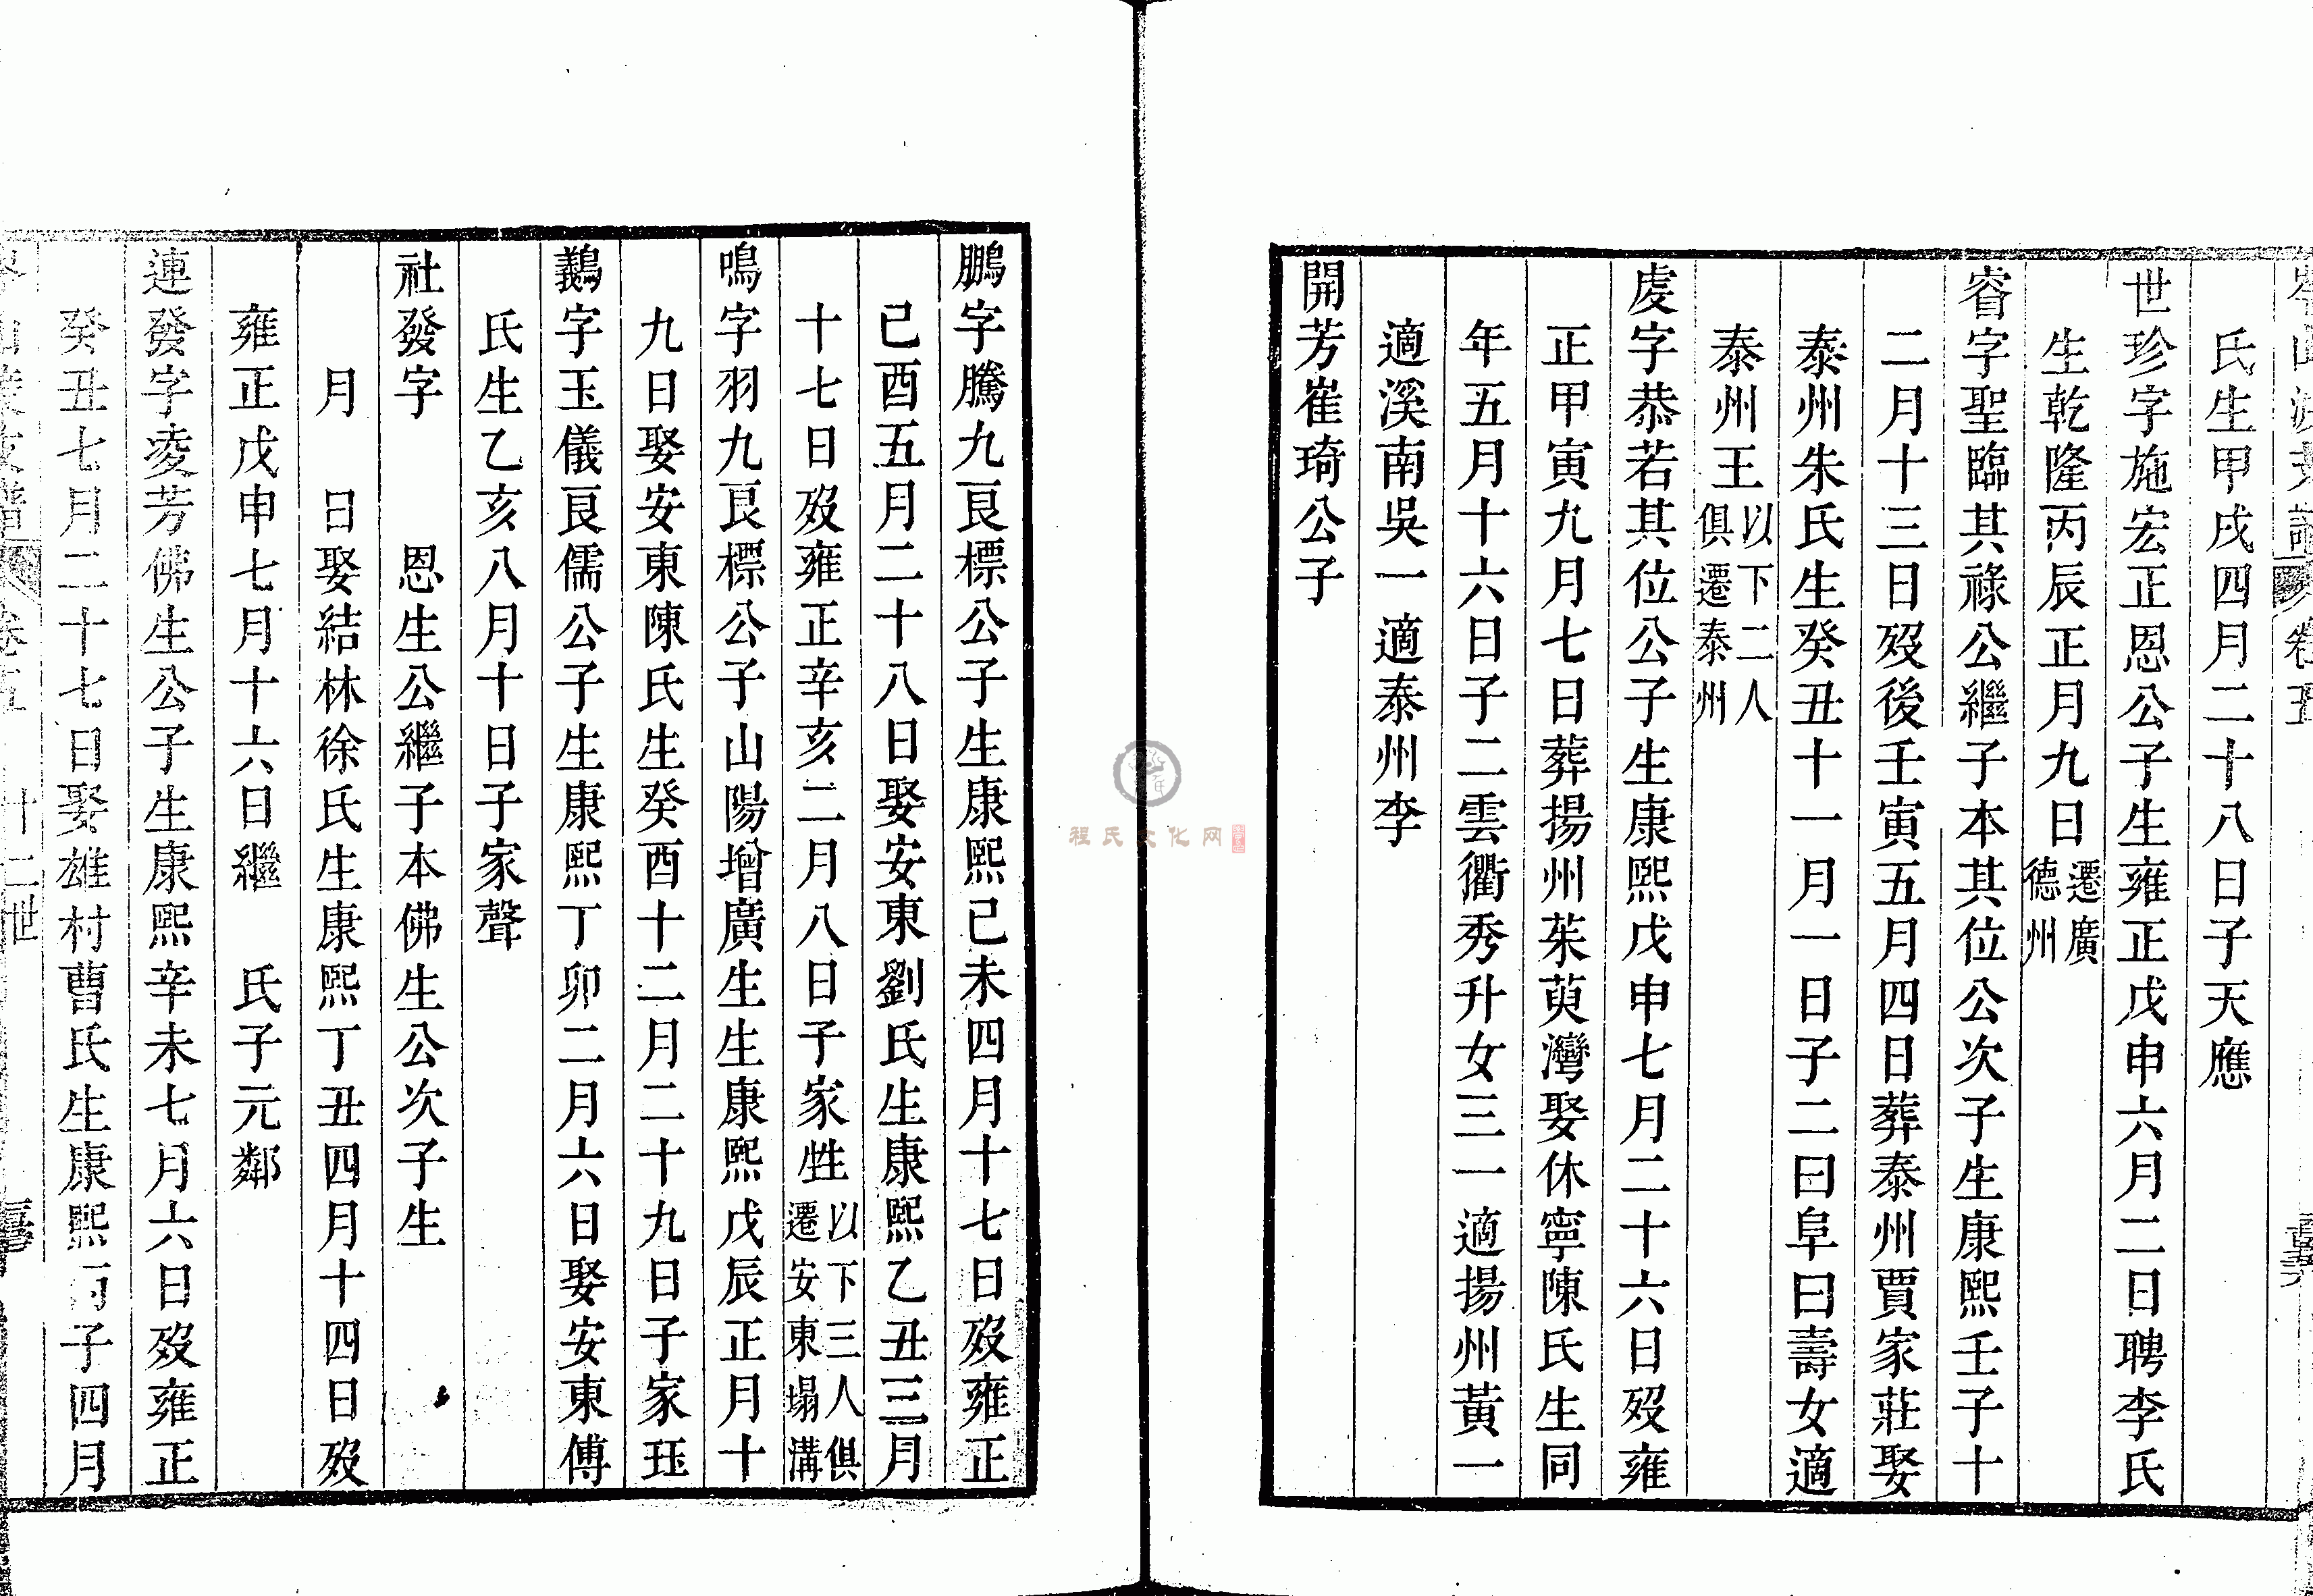 氏生甲戌四月二十八日子天應
世珍字施宏正恩公子生雍正戊申六月二日聘李氏
生乾隆丙辰正月九日遷廣德州
睿字聖臨其祿公繼子本其位公次子生康熙壬子十
二月十三日歿後壬寅五月四日葬泰州賈家莊娶
泰州朱氏生癸丑十一月一日子二曰阜曰壽女適
泰州王以下二人俱遷泰州
虔字恭若其位公子生康熙戊申七月二十六日歿雍
正甲寅九月七日葬揚州茱萸灣娶休寧陳氏生同
年五月十六日子二雲衢秀升女三一適揚州黃一
適溪南吳一適泰州李
開芳崔琦公子
鵬字騰九良標公子生康熙己未四月十七日歿雍正
己酉五月二十八日娶安東劉氏生康熙乙丑三月
十七日歿雍正辛亥二月八日子家甡以下三人俱遷安東塌溝
鳴字羽九良標公子山陽增廣生生康熙戊辰正月十
九日娶安東陳氏生癸酉十二月二十九日子家珏
鵞字玉儀良儒公子生康熙丁卯二月六日娶安東傅
氏生乙亥八月十日子家聲
社發字 恩生公繼子本佛生公次子生
月 日娶結林徐氏生康熙丁丑四月十四日歿
雍正戊申七月十六日繼 氏子元鄰
連發字凌芳佛生公子生康熙辛未七月六日歿雍正
癸丑七月二十七日娶雄村曹氏生康熙丙子四月
卷五 十二世
程氏文化网